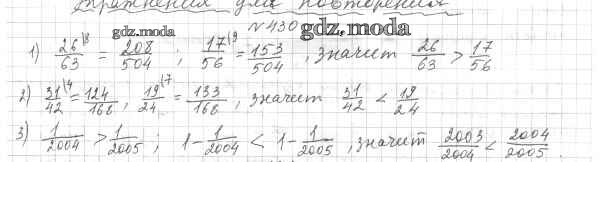 Упражнения для повторения
№430
gdz.moda gdz.moda
1) 26/63 |8 = 208/504 ; 17/56 |9 = 153/504 , значит 26/63 > 17/56
2) 31/42 |4 = 124/168 , 19/24 |7 = 133/168 , значит 31/42 < 19/24
3) 1/2004 > 1/2005 ; 1-1/2004 < 1-1/2005 , значит 2003/2004 < 2004/2005 .